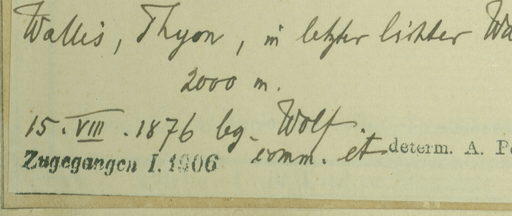 Wallis, Thyon, in letzter lichter Wa
2000 m.
15. VIII. 1876 leg. Wolf.
comm. et determ. A. P
Zugegangen I. 1906